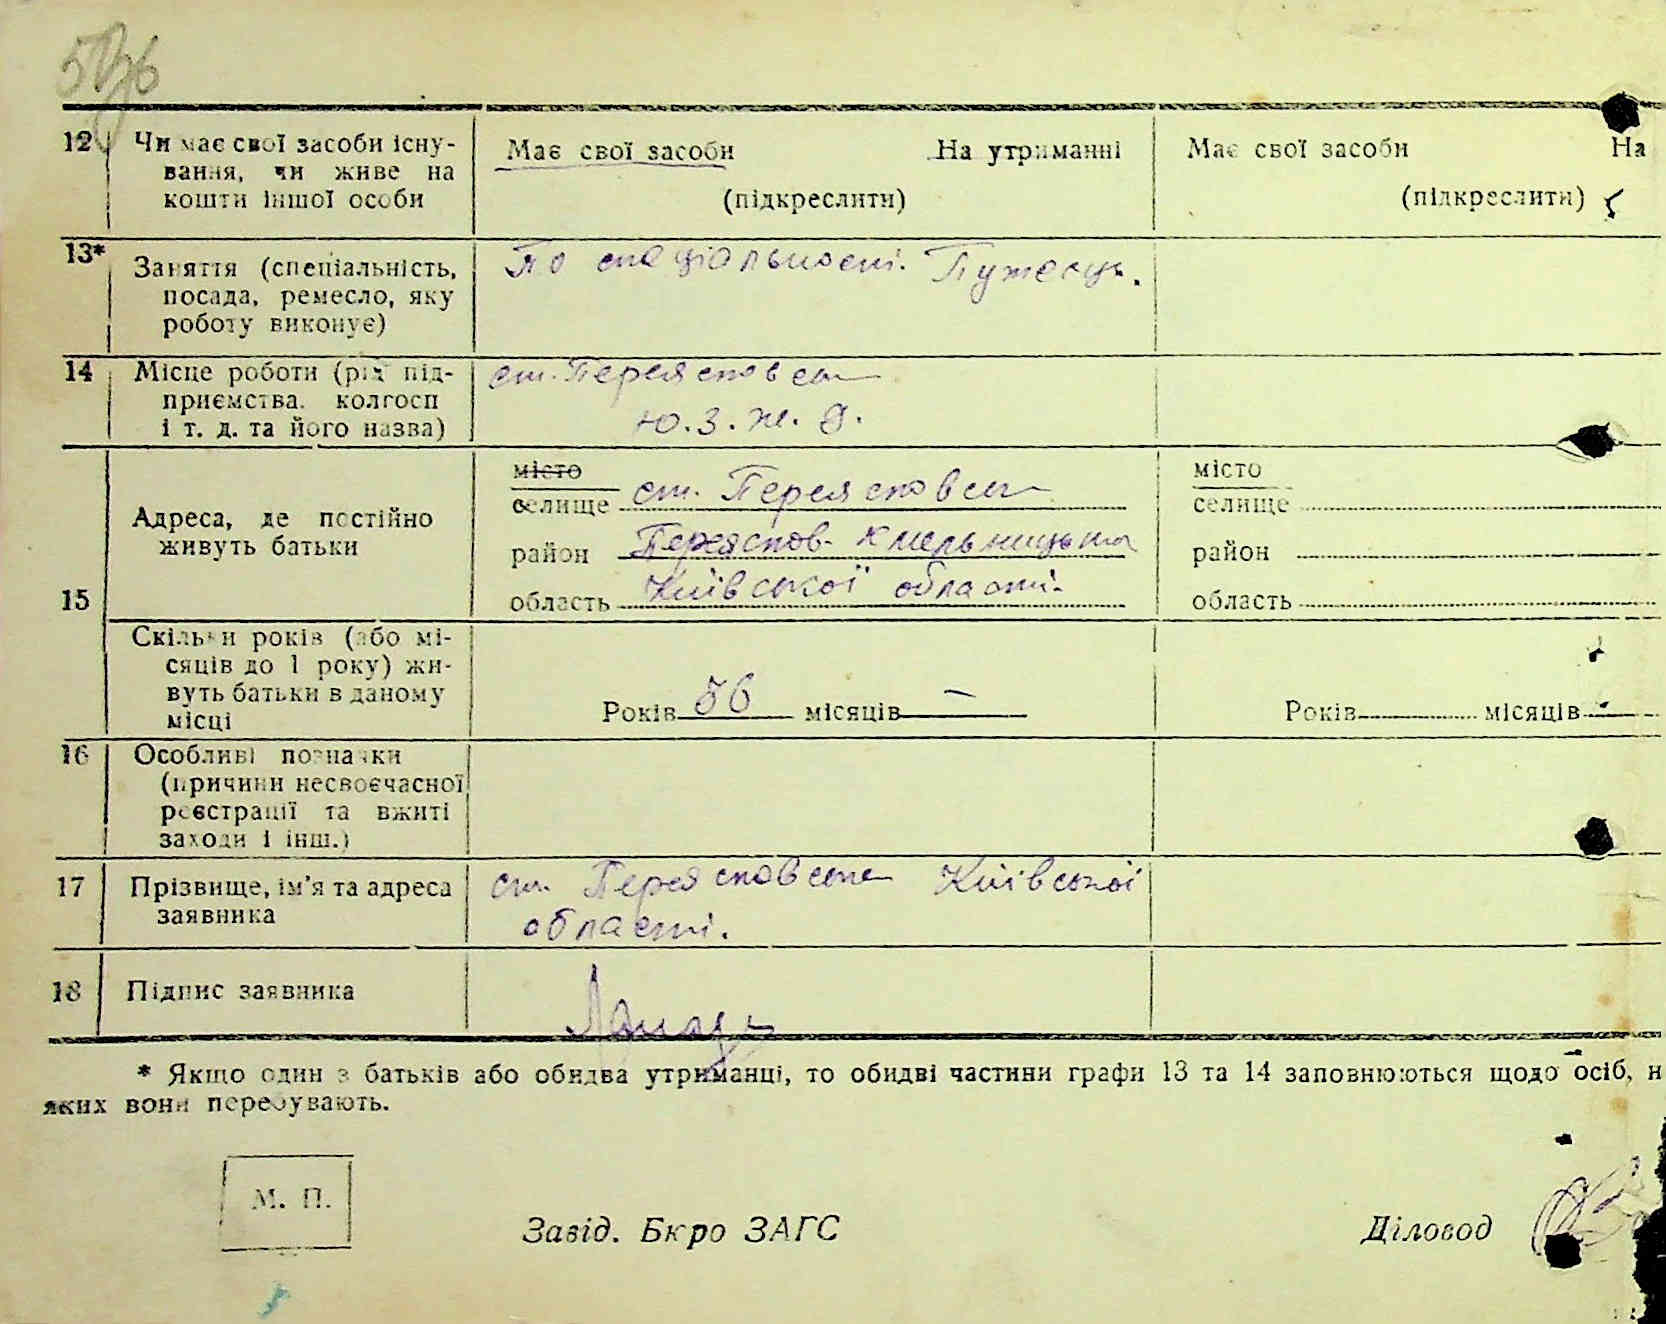 12 Чи має свої засоби існу-
вання, чи живе на
кошти іншої особи
Має свої засоби На утриманні
(підкреслити)
Має свої засоби На
(підкреслити)
13* Заняття (спеціальність,
посада, ремесло, яку
роботу виконує)
По спеціальності.
14 Місце роботи (рід під-
приємства, колгосп
і т. д. та його назва)
ст. Переясповська
Ю.З.ж.д.
15 Адреса, де постійно
живуть батьки
місто
селище ст. Переясповська
район Переяспов-Хмельницька
область Київської області.
місто
селище
район
область
Скільки років (або мі-
сяців до 1 року) жи-
вуть батьки в даному
місці
Років 56 місяців —
Років місяців
16 Особливі позначки
(причини несвоєчасної
реєстрації та вжиті
заходи і інш.)
17 Прізвище, ім'я та адреса
заявника
ст. Переясповська Київської
області.
18 Підпис заявника
* Якщо один з батьків або обидва утриманці, то обидві частини графи 13 та 14 заповнюються щодо осіб, н
яких вони перебувають.
М. П.
Завід. Бюро ЗАГС Діловод